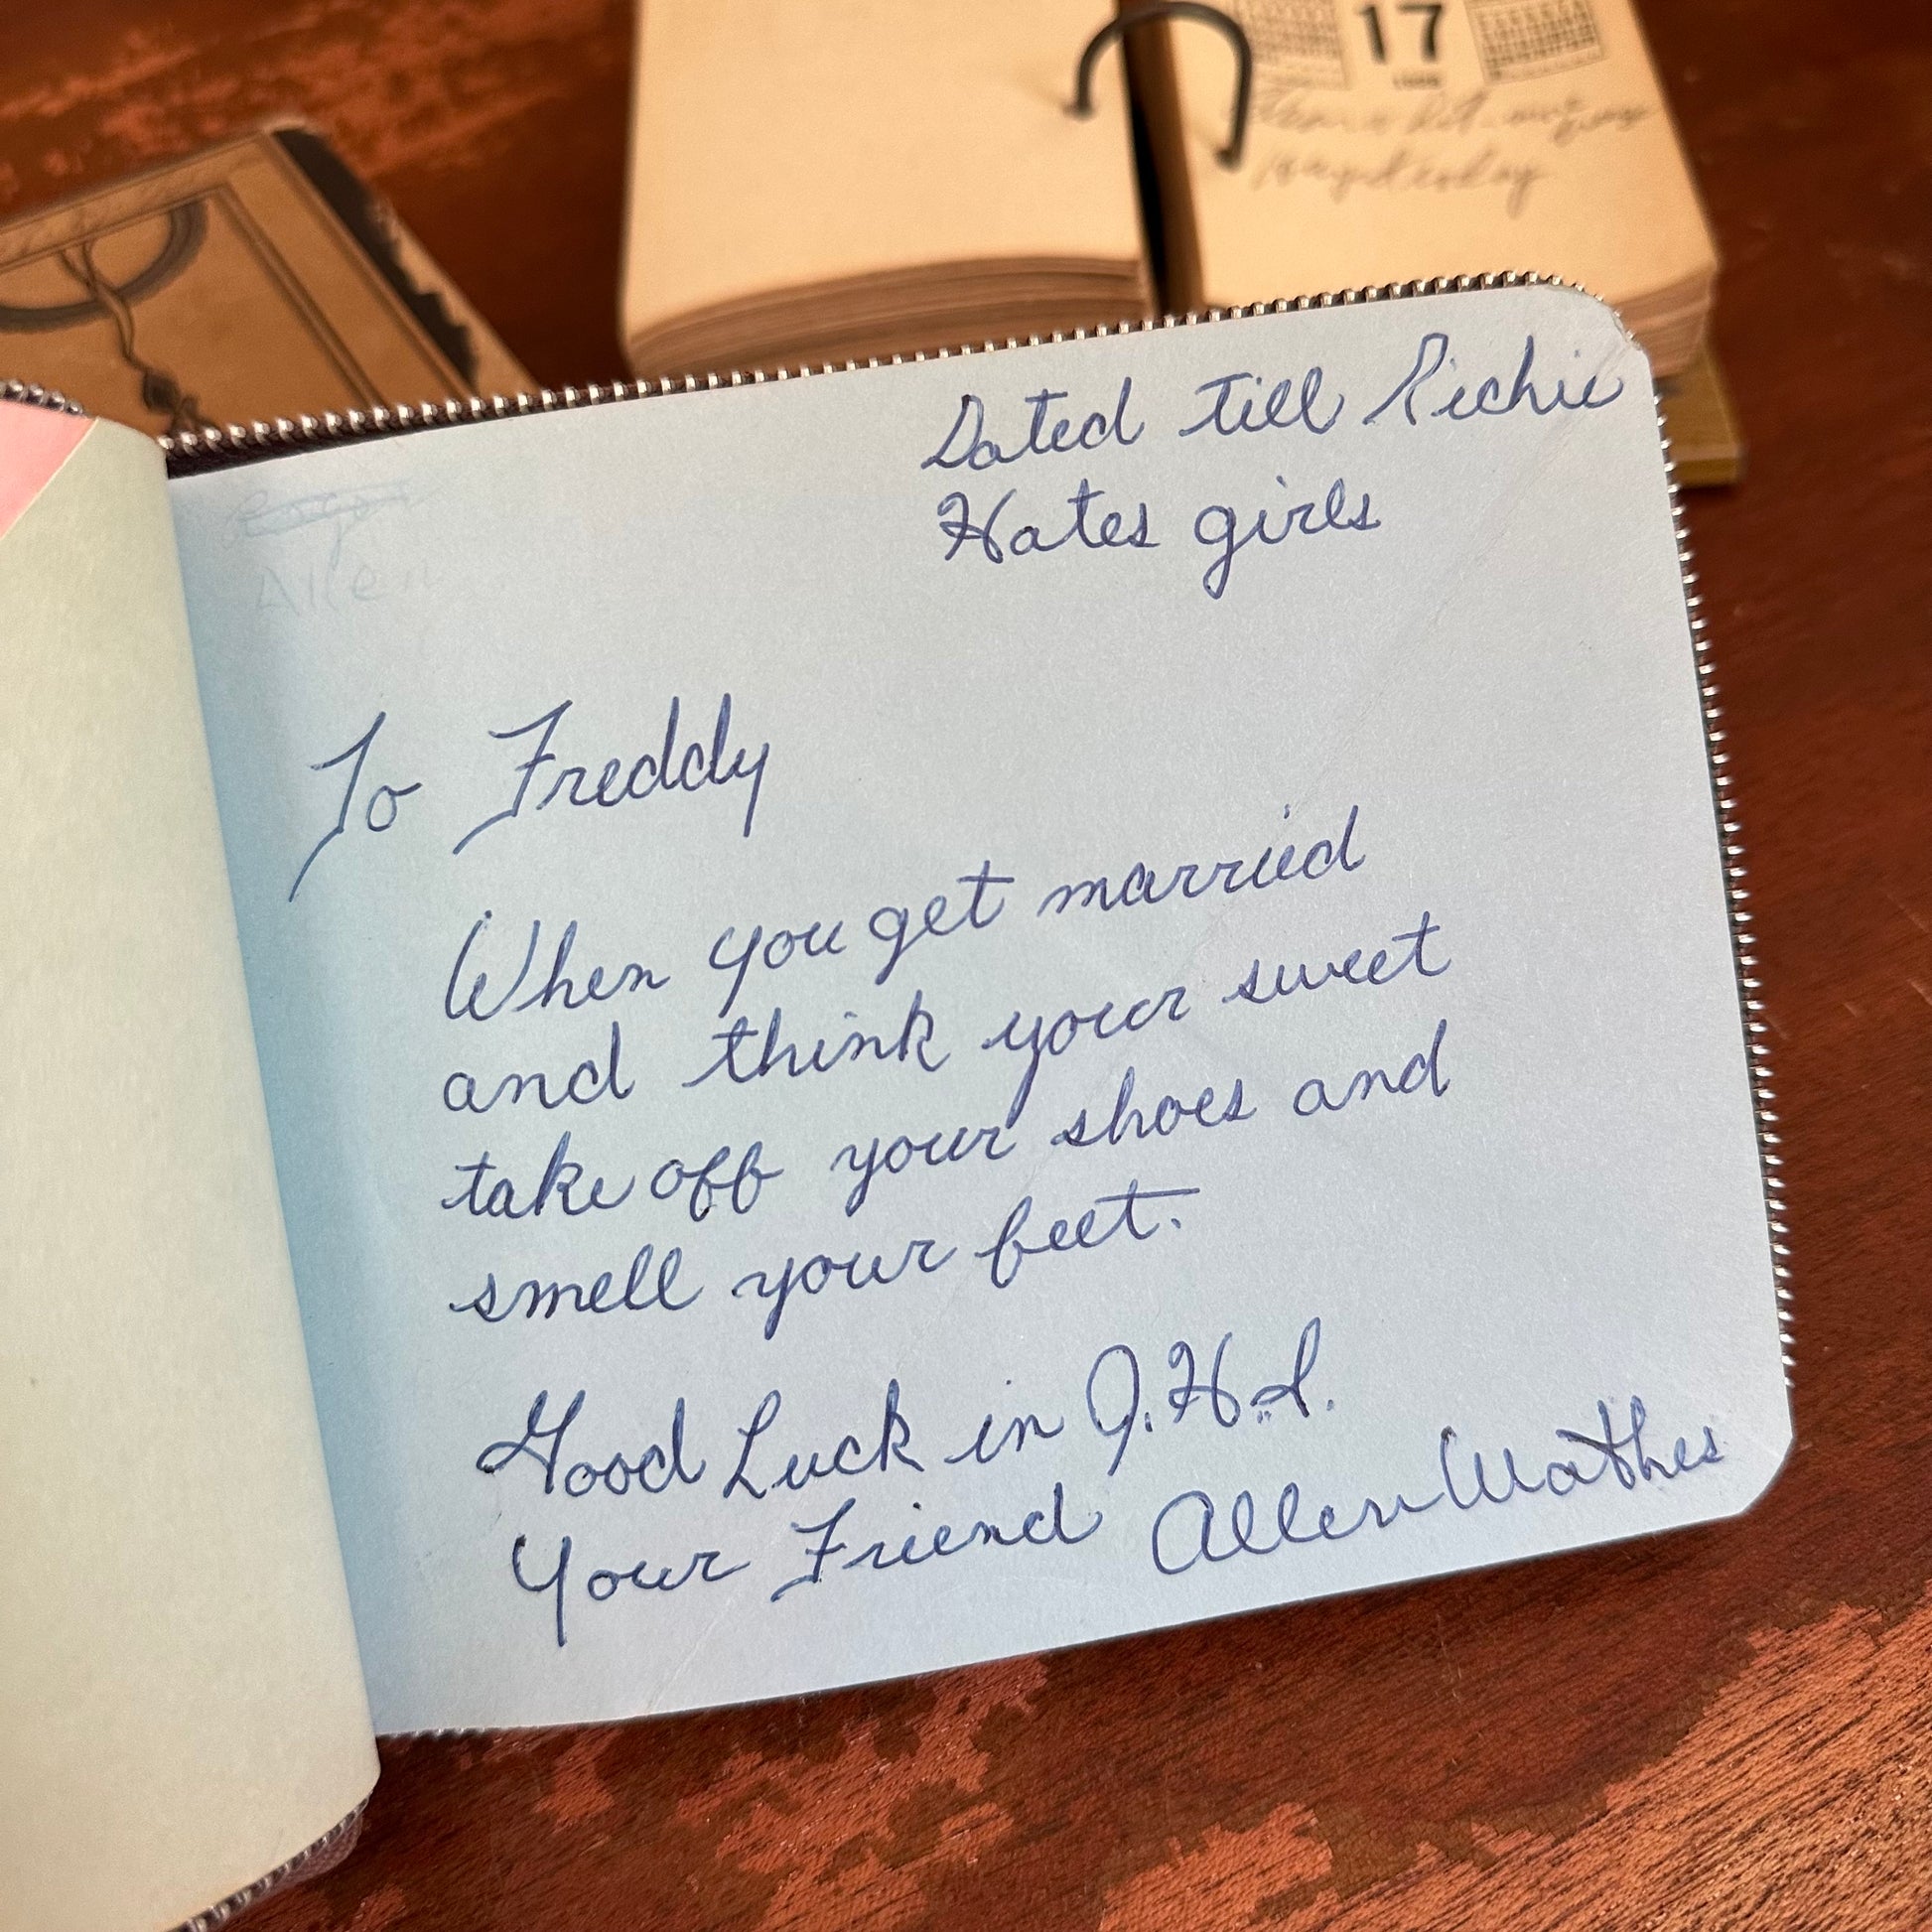 17
yesterday
Dated till Richie
Hates girls
Allen
To Freddy
When you get married
and think your sweet
take off your shoes and
smell your feet.
Good Luck in J.H.S.
Your Friend Allen Wathes